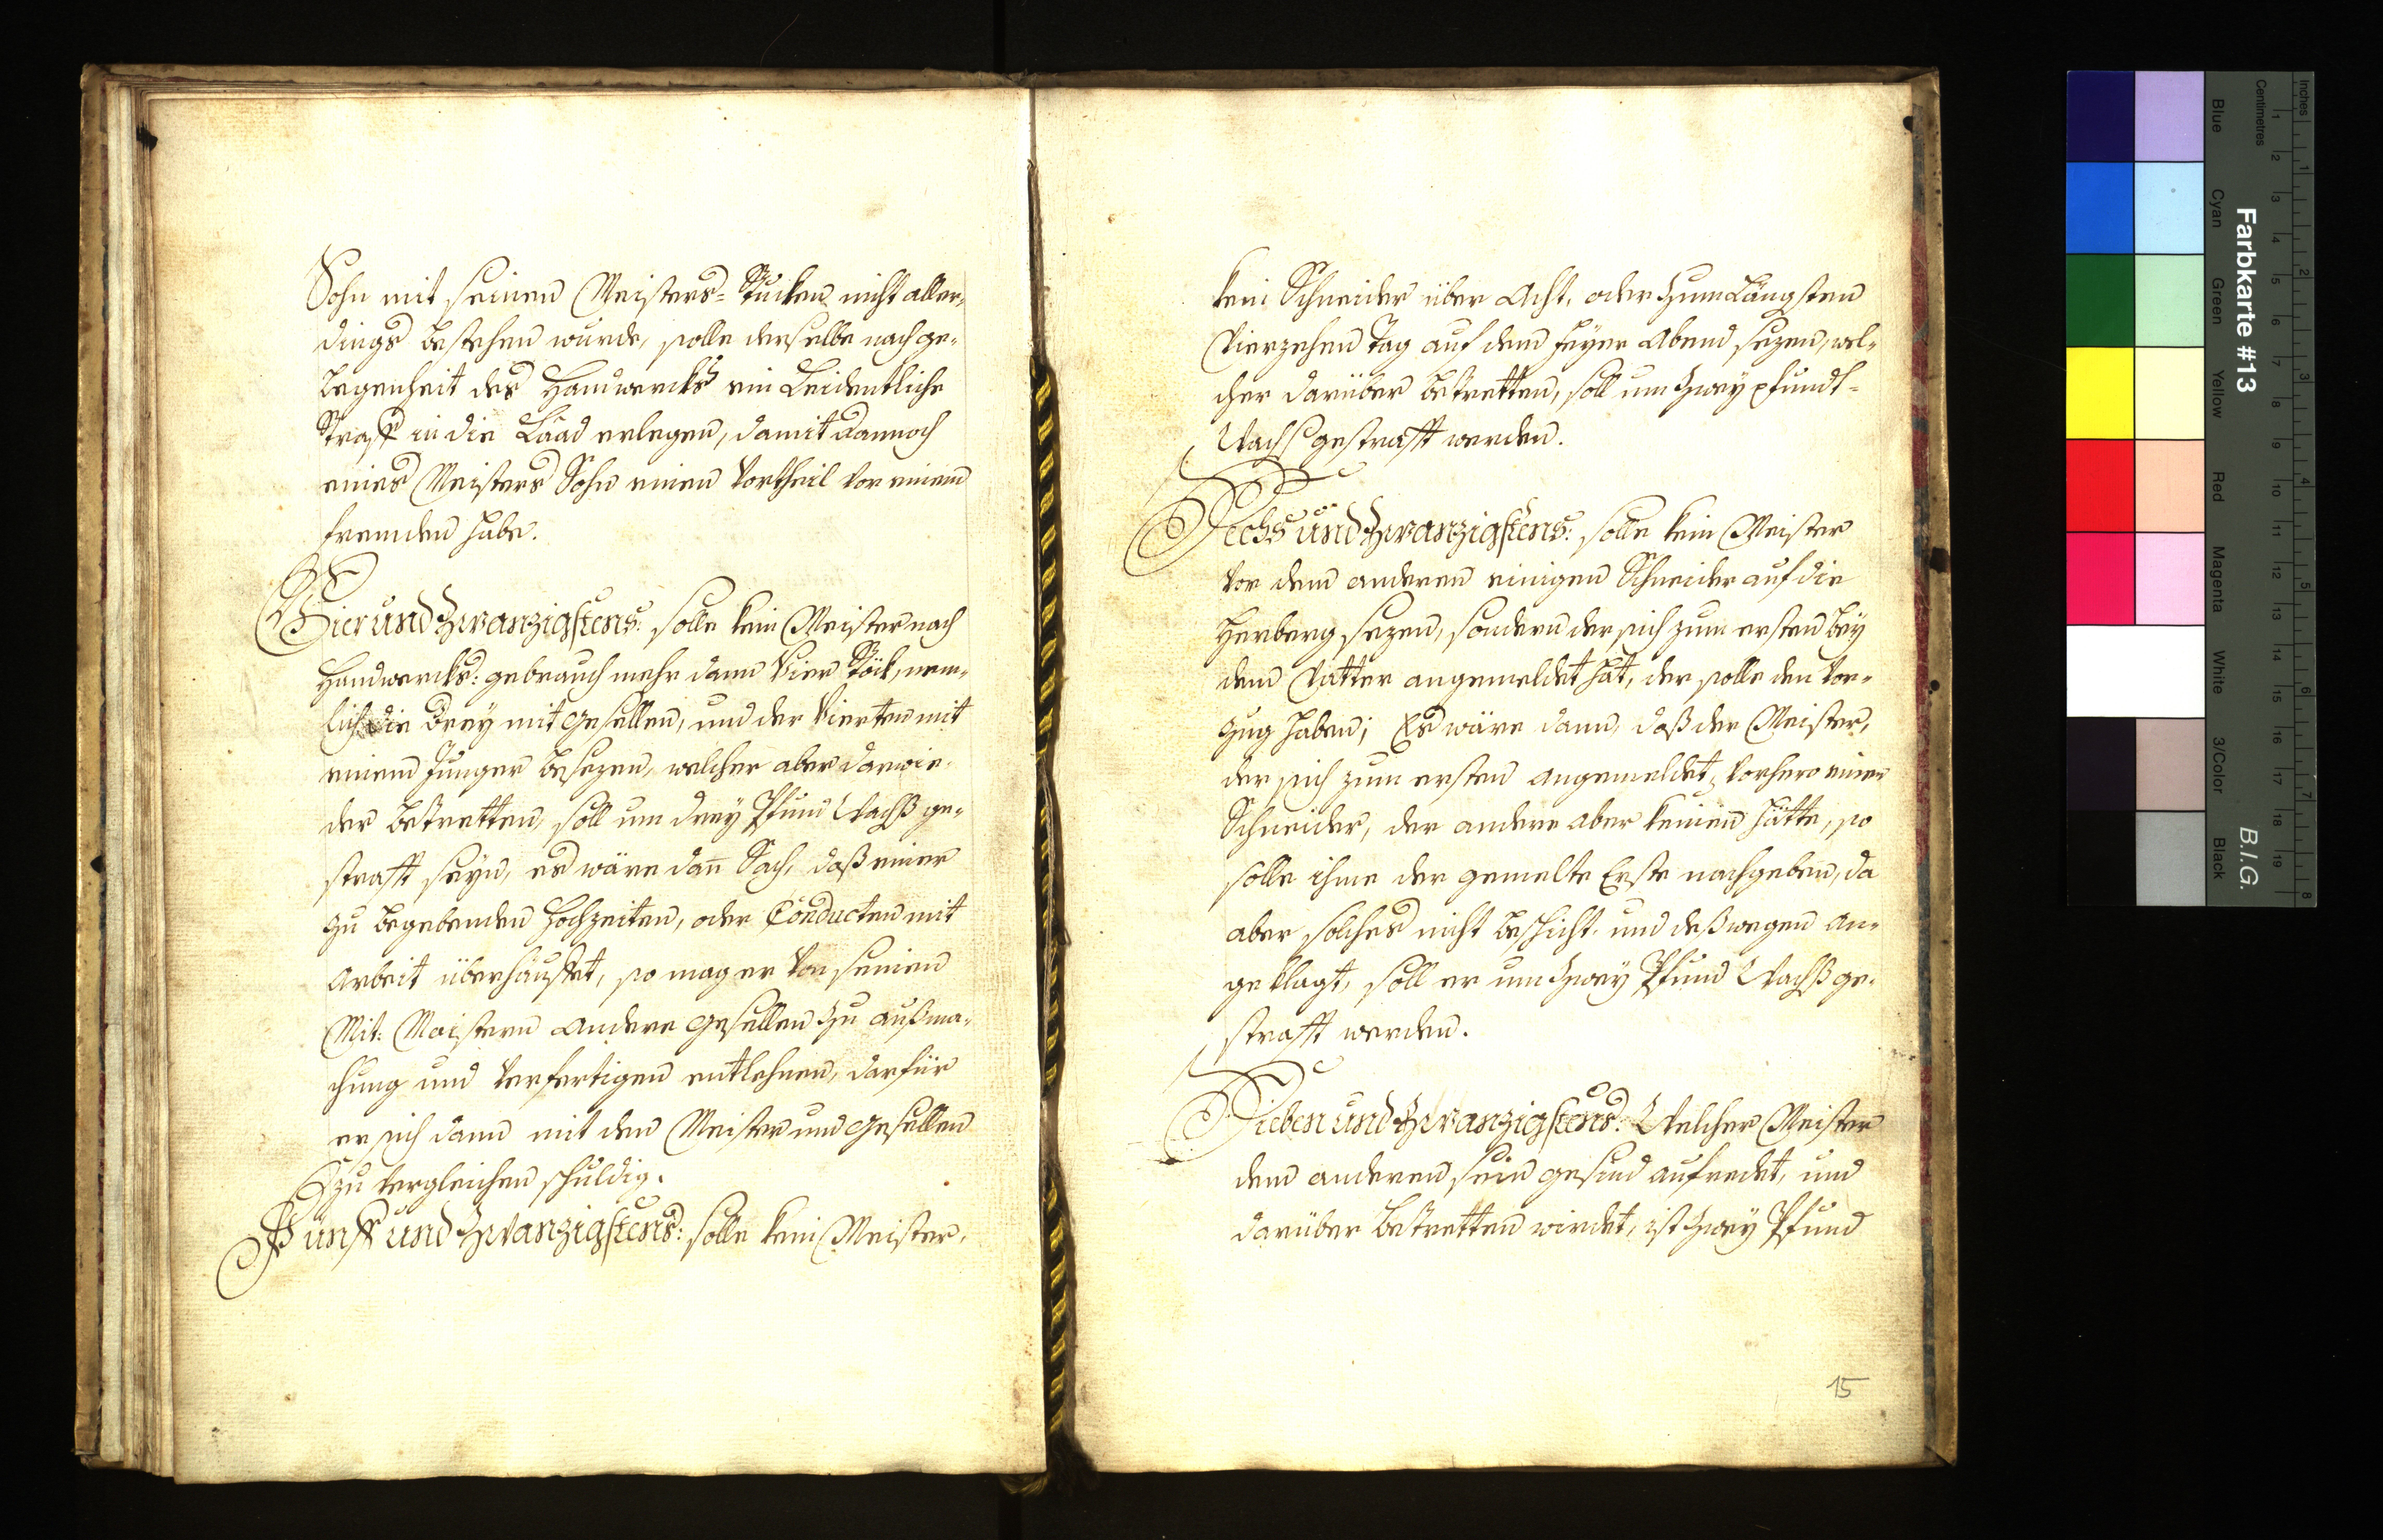 Sohn mit seinen Meisters-Stucken nicht aller-
dings bestehen wurde, solle derselbe nach ge-
legenheit des Handwercks ein Leidentliche
Straff in die Laad erlegen, damit dannoch
eines Meisters Sohn einen Vortheil vor einem
fremden habe.
Vier und Zwanzigstens: solle kein Meister nach
Handwercks: gebrauch mehr dann Vier Stöck, nem-
lich die Drey mit Gesellen, und der Vierten mit
einem Junger besezen, welcher aber darwie-
der betretten, soll um drey Pfund Wachß ge-
strafft seyn, es wäre dañ Sach, daß einer
zu begebenden Hochzeiten, oder Conducten mit
Arbeit überhäuffet, so mag er von seinen
Mit: Maistern andere Gesellen zu außma-
chung und Verfertigen entlehnen, darfür
er sich dann mit den Meister und Gesellen
zu vergleichen schuldig.
Fünff und Zwanzigstens: solle kein Meister,
kein Schneider über Acht, oder zum Längsten
Vierzehen Tag auf den Feyer Abend sezen, wel-
cher darüber betretten, soll um Zwey pfundt-
Wachs gestrafft werden.
Sechs und Zwanzigstens: solle kein Meister
vor dem anderen einigen Schneider auf die
Herberg sezen, sondern der sich zum ersten bey
dem Vatter angemeldet hat, der solle den Vor-
zug haben; Es wäre dann, daß der Meister,
der sich zum ersten angemeldet, vorhero einen
Schneider, der andere aber keinen hätte, so
solle ihme der gemelte Erste nachgeben, da
aber solches nicht beschicht, und deßwegen an-
geklagt, soll er um Zwey Pfund Wachß ge-
strafft werden.
Sieben und Zwanzigstens: Welcher Meister
dem anderen sein gesind aufredet, und
darüber betretten wirdet, ist Zwey Pfund
15
Farbkarte #13
B.I.G.
Inches
Centimetres
Blue
Cyan
Green
Yellow
Red
Magenta
White
3/Color
Black
1 2 3 4 5 6 7 8 9 10 11 12 13 14 15 16 17 18 19
1 2 3 4 5 6 7 8